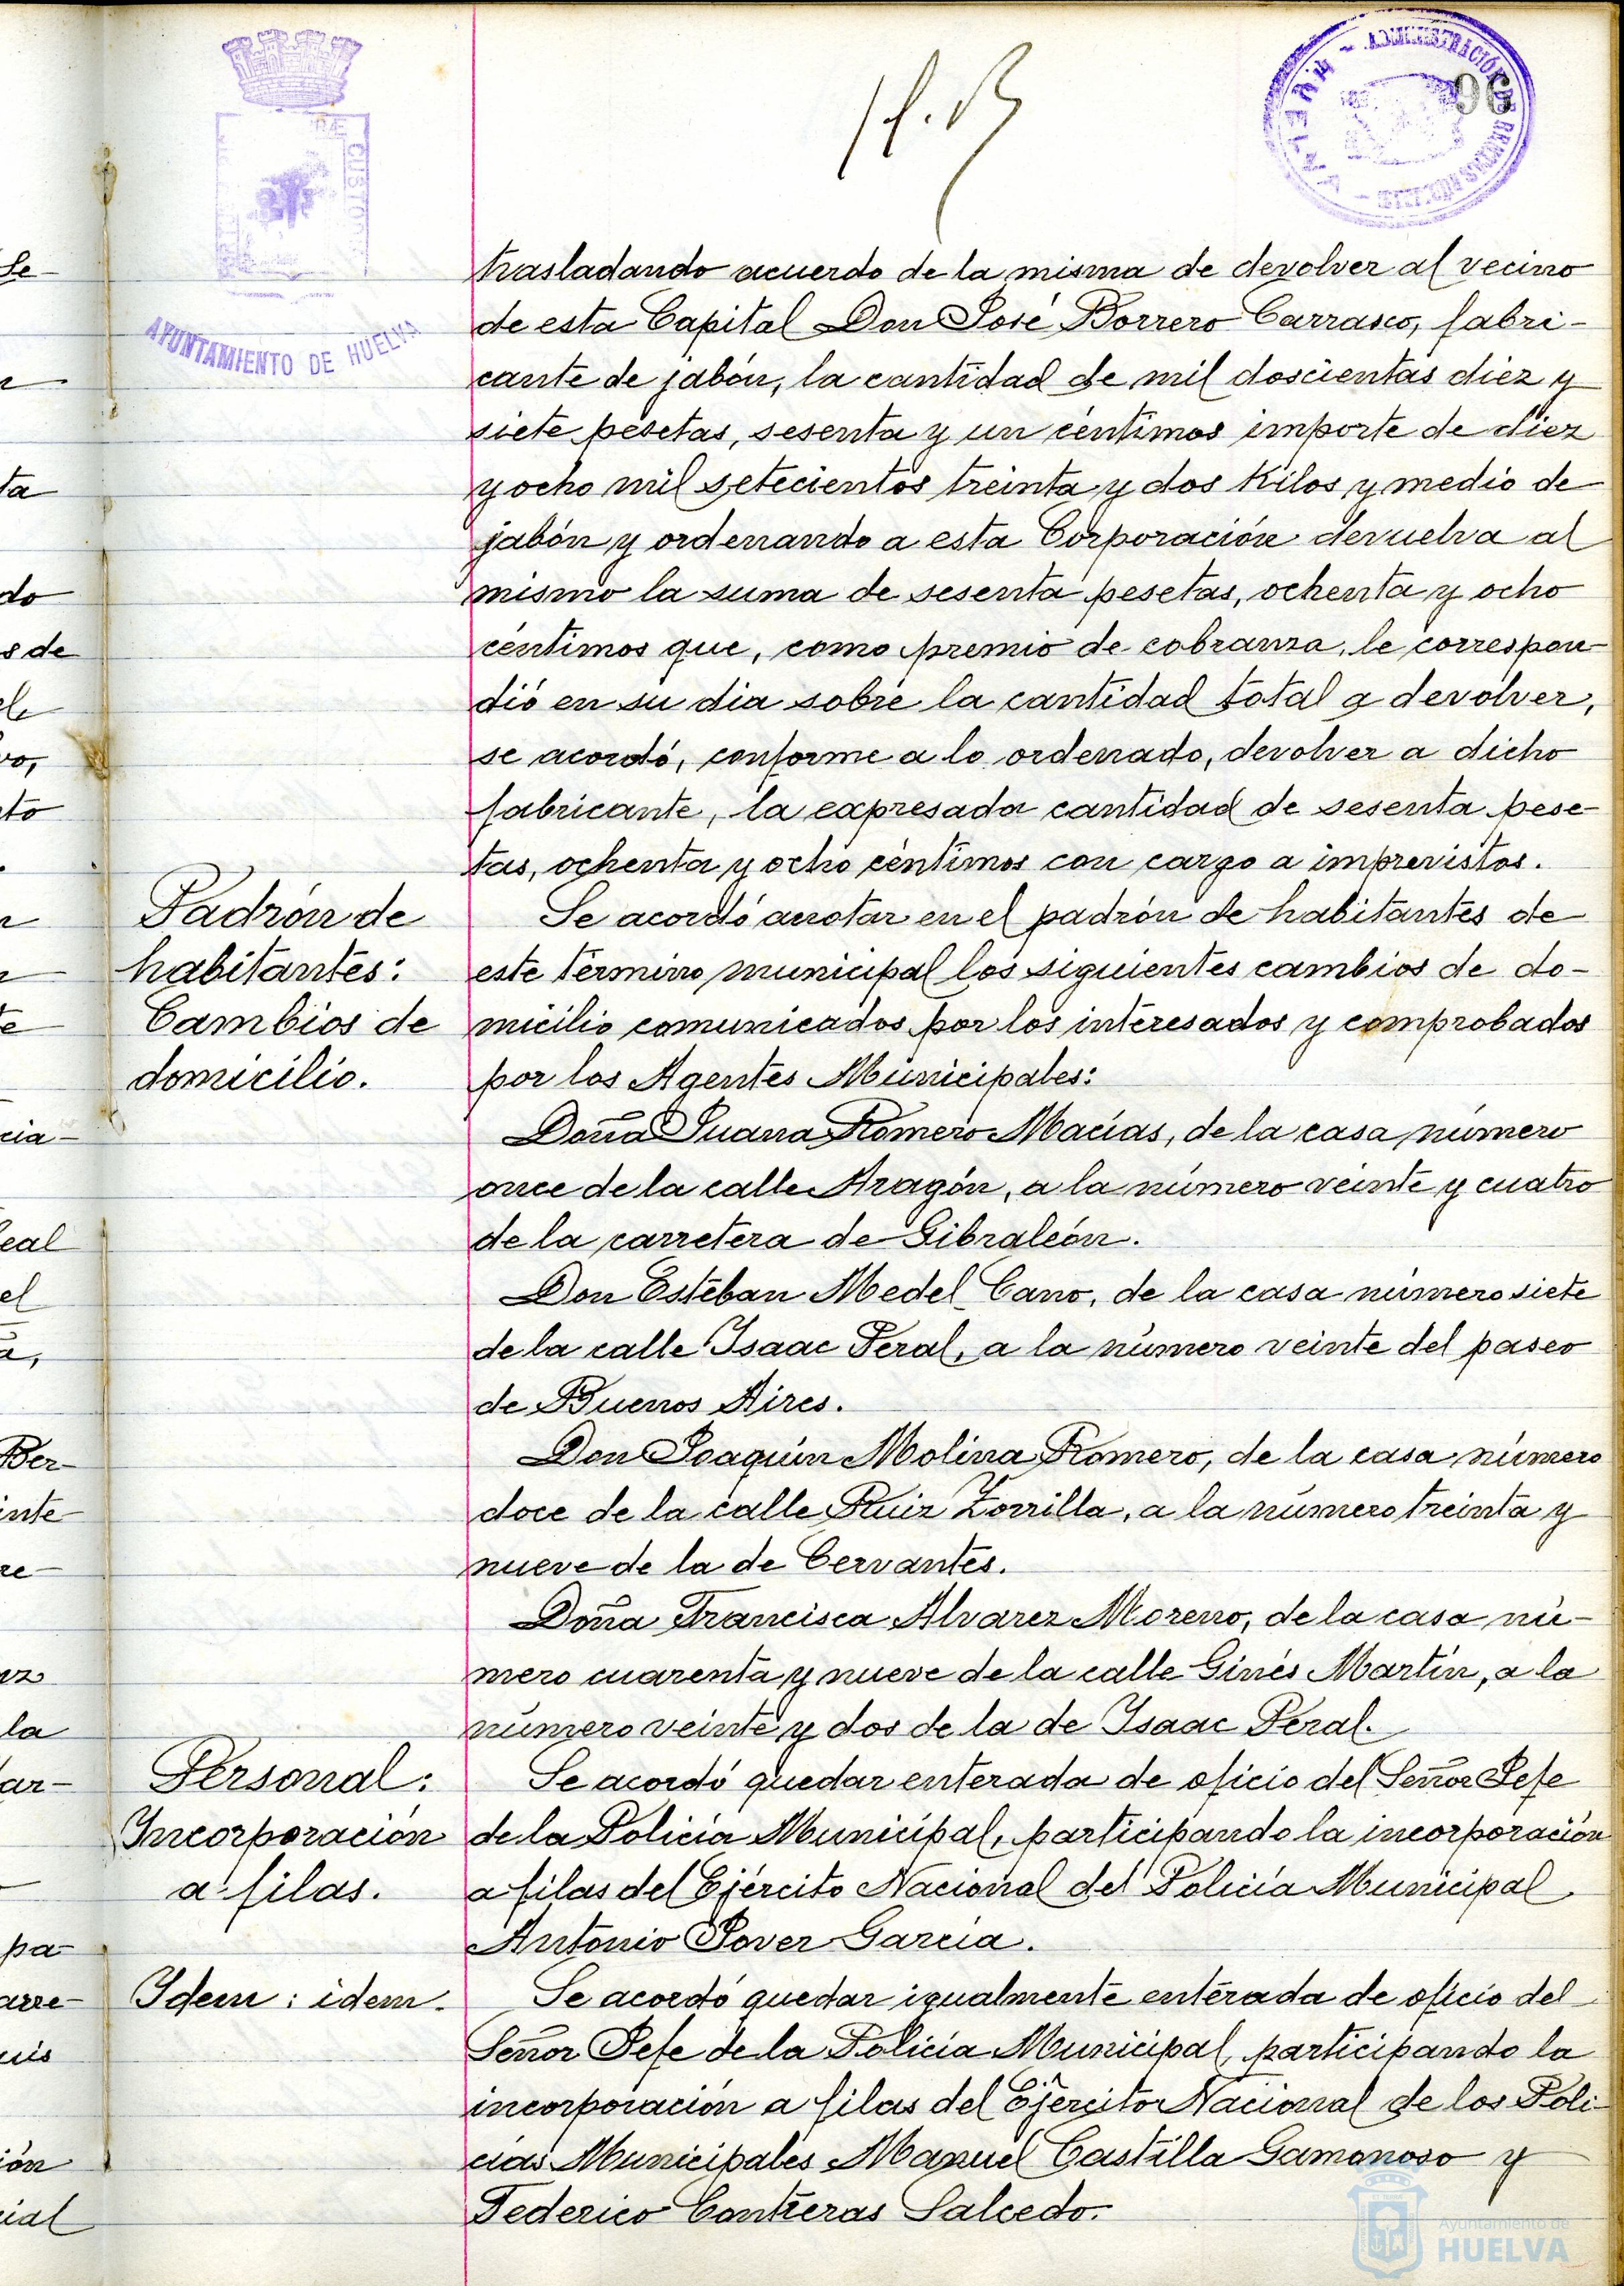 AYUNTAMIENTO DE HUELVA
HUELVA
96
trasladando acuerdo de la misma de devolver al vecino
de esta Capital Don José Borrero Carrasco, fabri-
cante de jabón, la cantidad de mil doscientas diez y
siete pesetas, sesenta y un céntimos importe de diez
y ocho mil setecientos treinta y dos kilos y medio de
jabón y ordenando a esta Corporación devuelva al
mismo la suma de sesenta pesetas, ochenta y ocho
céntimos que, como premio de cobranza, le correspon-
dió en su dia sobre la cantidad total a devolver,
se acordó, conforme a lo ordenado, devolver a dicho
fabricante, la expresada cantidad de sesenta pese-
tas, ochenta y ocho céntimos con cargo a imprevistos.
Padrón de
habitantes:
Cambios de
domicilio.
Se acordó anotar en el padrón de habitantes de
este término municipal los siguientes cambios de do-
micilio comunicados por los interesados y comprobados
por los Agentes Municipales:
Doña Juana Romero Macías, de la casa número
once de la calle Aragón, a la número veinte y cuatro
de la carretera de Gibraleón.
Don Estéban Medel Cano, de la casa número siete
de la calle Isaac Peral, a la número veinte del paseo
de Buenos Aires.
Don Joaquín Molina Romero, de la casa número
doce de la calle Ruiz Zorrilla, a la número treinta y
nueve de la de Cervantes.
Doña Francisca Alvarez Moreno, de la casa nú-
mero cuarenta y nueve de la calle Ginés Martín, a la
número veinte y dos de la de Isaac Peral.
Personal:
Incorporación
a filas.
Se acordó quedar enterada de oficio del Señor Jefe
de la Policía Municipal, participando la incorporación
a filas del Ejército Nacional del Policía Municipal
Antonio Jover García.
Idem: idem.
Se acordó quedar igualmente enterada de oficio del
Señor Jefe de la Policía Municipal, participando la
incorporación a filas del Ejército Nacional de los Poli-
cías Municipales Manuel Castilla Gamonoso y
Federico Contreras Salcedo.
Ayuntamiento de
HUELVA